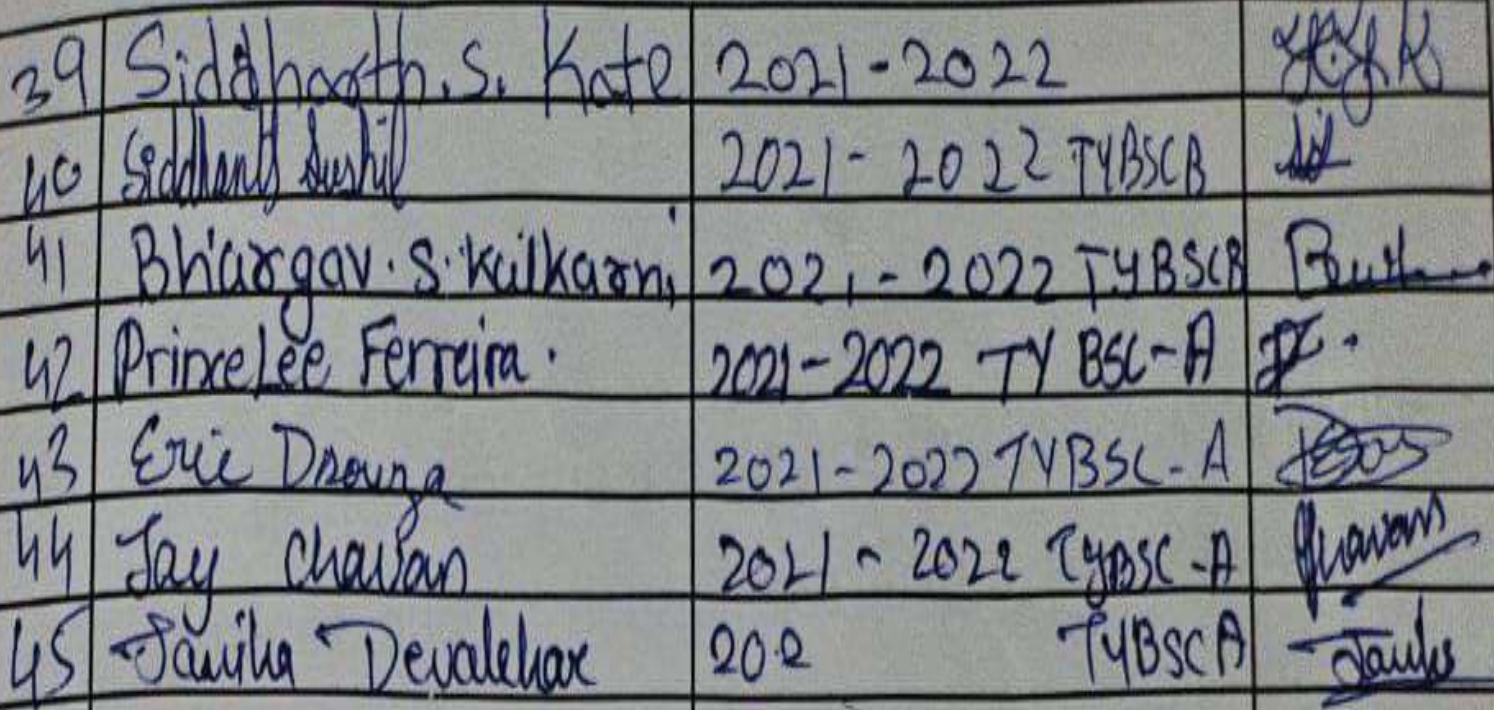 39 Siddharth.S. Kate 2021-2022
40 Siddhant Sushil 2021-2022 TYBSCB
41 Bhargav.S.Kulkarni 2021-2022 TYBSCB
42 Princelee Ferreira. 2021-2022 TY BSC-A
43 Eric Dsouza 2021-2022 TYBSC-A
44 Jay Chavan 2021-2022 TYBSC-A Chavan
45 Devalekar 202 TYBSCA